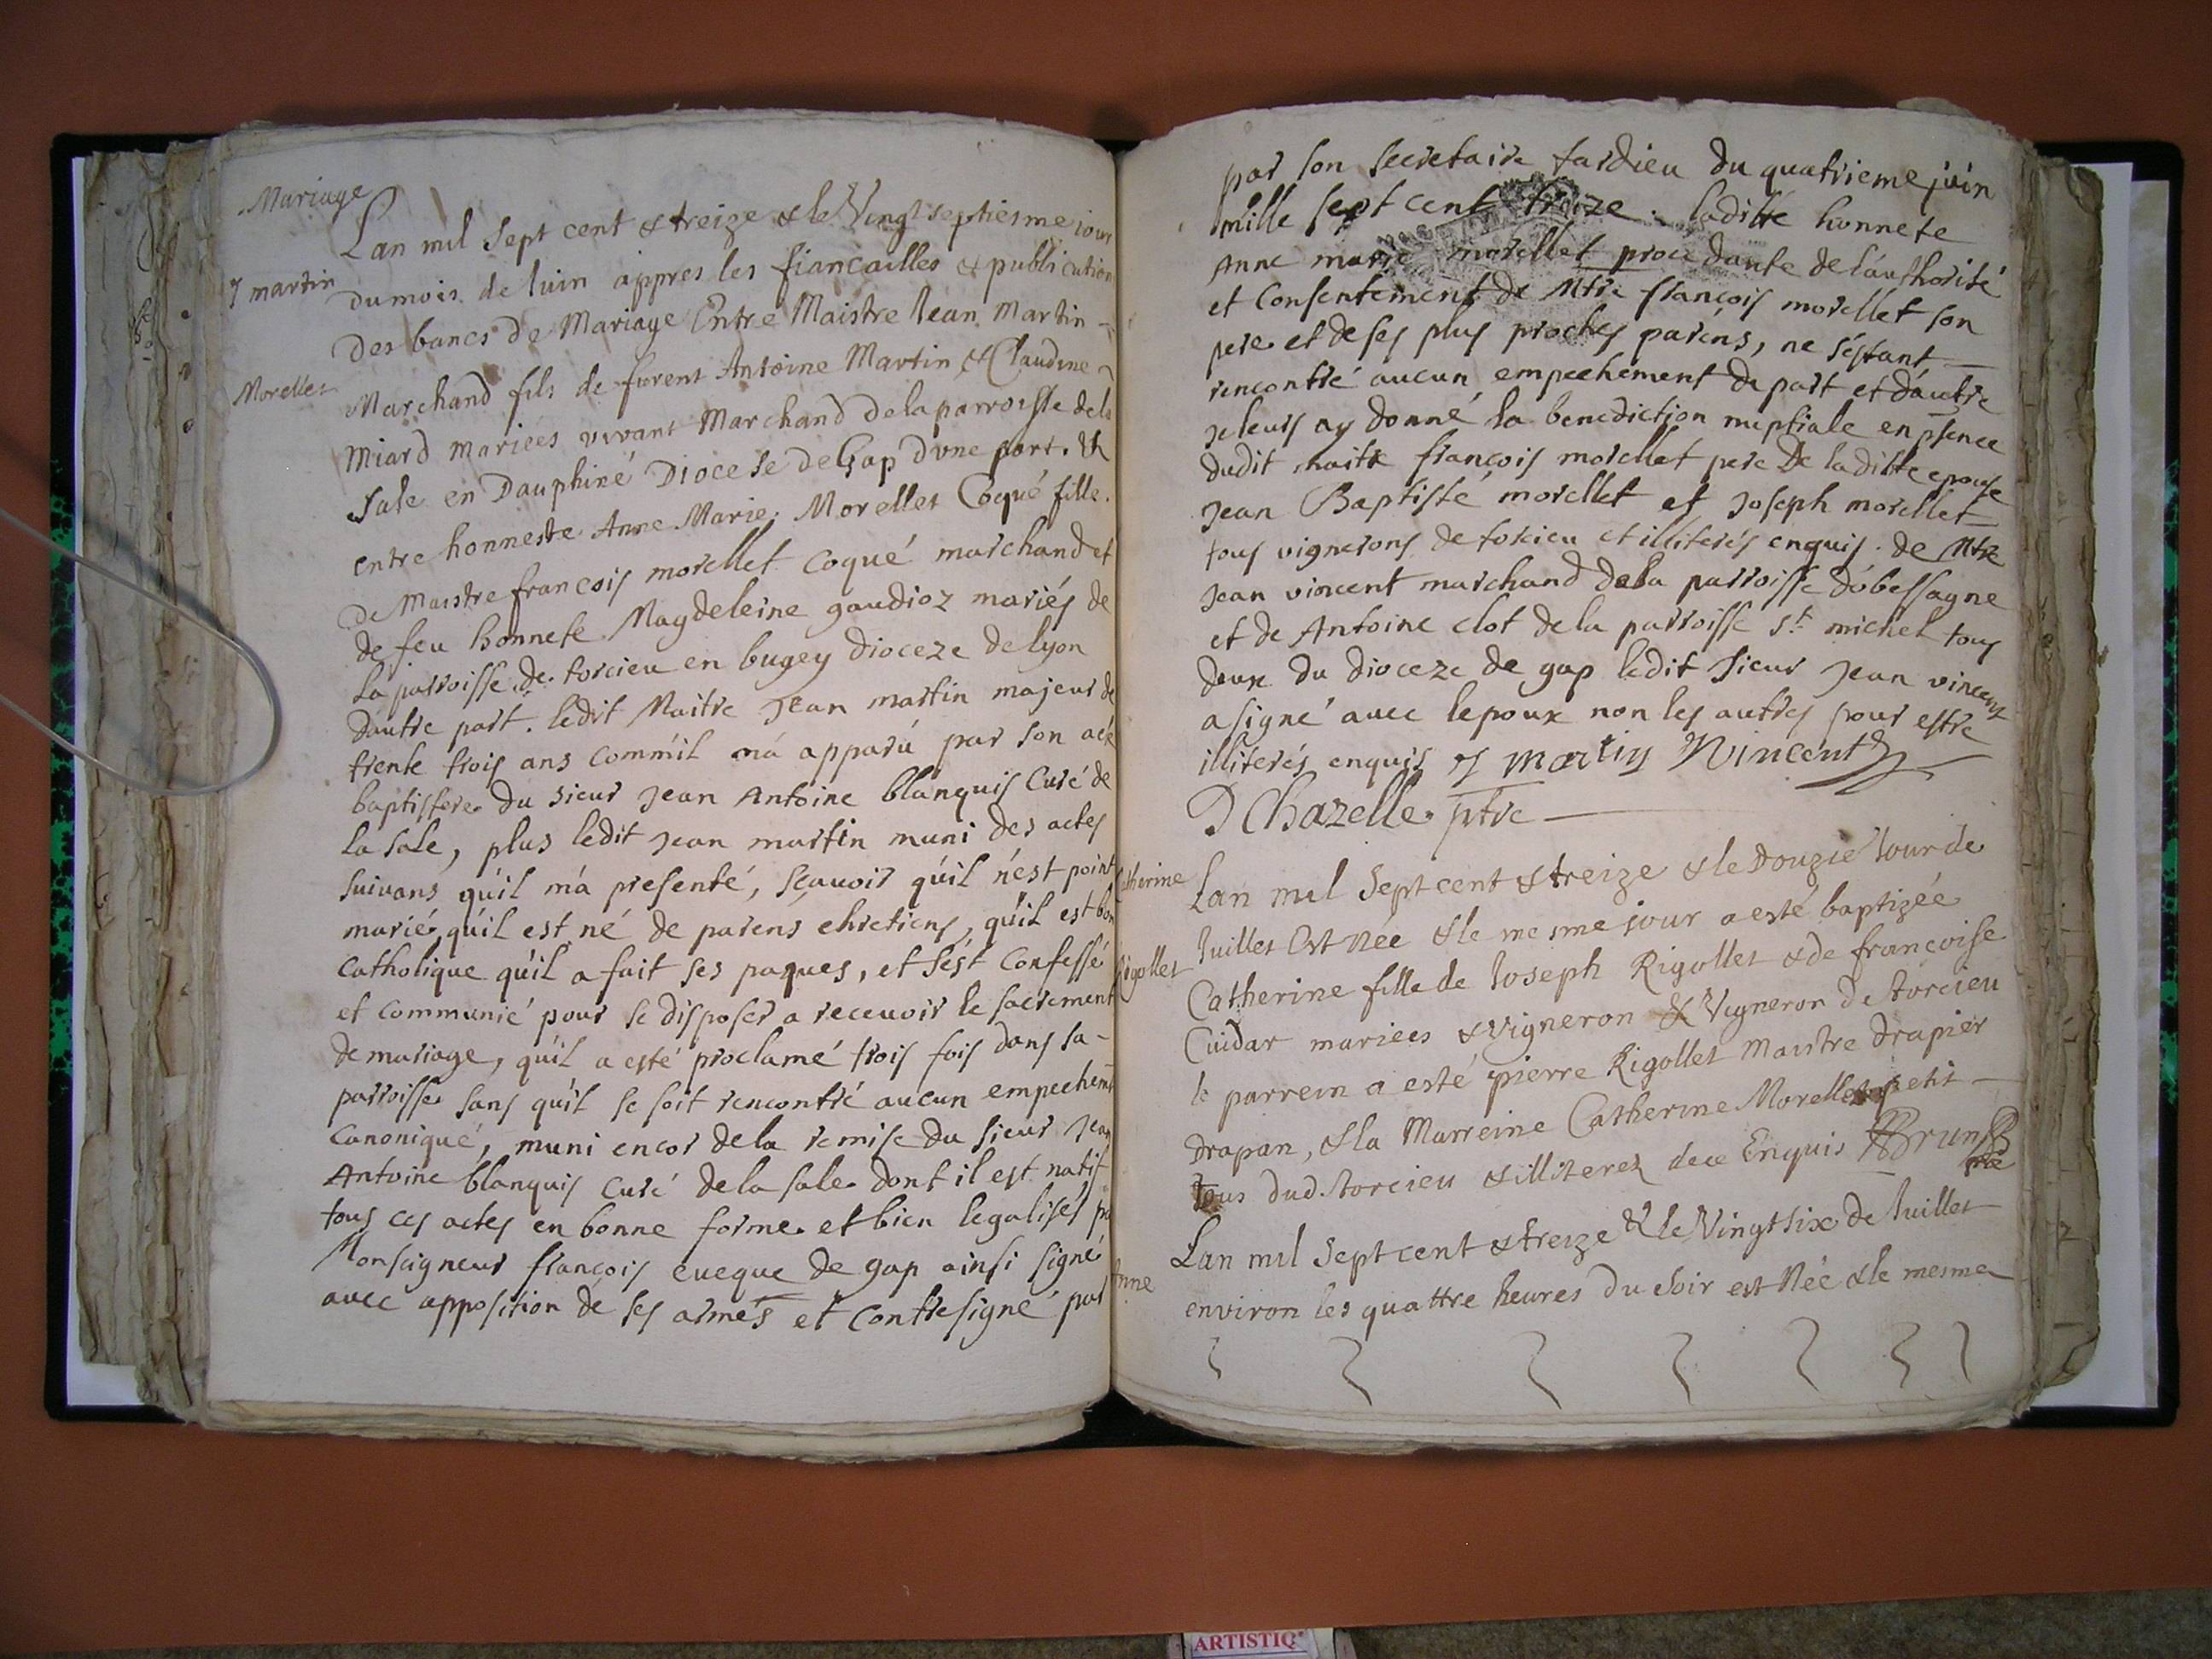 Mariage
J martin
Morellet
Lan mil sept cent & treize & le Vingt septiesme iour
du mois de Iuin appres les fiancailles & publication
Des bancs de Mariage Entre Maistre Iean Martin
Marchand fils de furent Antoine Martin & Claudine
Miard mariees vivant Marchand de la parroisse de la
Sale en Dauphiné Diocese de Gap dvne part. &
entre honneste Anne Marie Morellet Coqué fille
De Maistre francois morellet coqué marchand et
de feu honnete Magdeleine gaudioz mariés de
La parroisse de torcieu en bugey dioceze de lyon
dautre part. ledit Maitre Jean martin majeur de
trente trois ans comm'il m'a apparu par son acte
baptistere du sieur Jean Antoine blanquis Curé de
la sale, plus ledit Jean martin muni des actes
suivans qu'il m'a presenté, sçauoir qu'il n'est point
marié, qu'il est né de parens chretiens, qu'il est bon
Catholique qu'il a fait ses paques, et s'est Confessé
et communié pour se disposer a receuoir le sacrement
de mariage, qu'il a esté proclamé trois fois dans sa
parroisse sans qu'il se soit rencontré aucun empechemt
Canonique, muni encor de la remise du sieur Jean
Antoine blanquis curé de la sale dont il est natif
tous ces actes en bonne forme et bien legalisés pa
Monseigneur françois eueque de gap ainsi signé
auec apposition de ses armes et contresigné par
par son secretaire tardieu du quatrieme juin
mille sept cent treize. laditte honnete
Anne marie morellet procedante de l'authorité
et Consentement de Mtre françois morellet son
pere et de ses plus proches parens, ne s'estant
rencontré aucun empechement de part et d'autre
je leurs ay donné la benediction nuptiale en psence
dudit maitre françois morellet pere De laditte epouse
Jean Baptiste morellet et Joseph morellet
tous vignerons de torcieu et illiterés enquis. de Mtre
Jean vincent marchand dela parroisse dobessagne
et de Antoine clot de la parroisse st michel tous
deux du dioceze de gap ledit sieur Jean vincent
a signé auec lepoux non les autres pour estre
illiterés enquis J martin JVincent
D Chazelle ptre
Catherine
Rigollet
Lan mil sept cent & treize & le Douzie Iour de
Iuillet Est Née & le mesme jour a esté baptizée
Catherine fille de Ioseph Rigollet & de francoise
Cuidar mariees & vigneron & Vigneron de torcieu
le parrein a esté pierre Rigollet Maistre drapier
drapan, & la Marreine Catherine Morellet petit
tous dud. torcieu & illiterez de ce Enquis Brun
ptre
Anne
Lan mil sept cent & treize & le Vingt six de Iuillet
environ les quattre heures du soir est Née & le mesme
ARTISTIQ